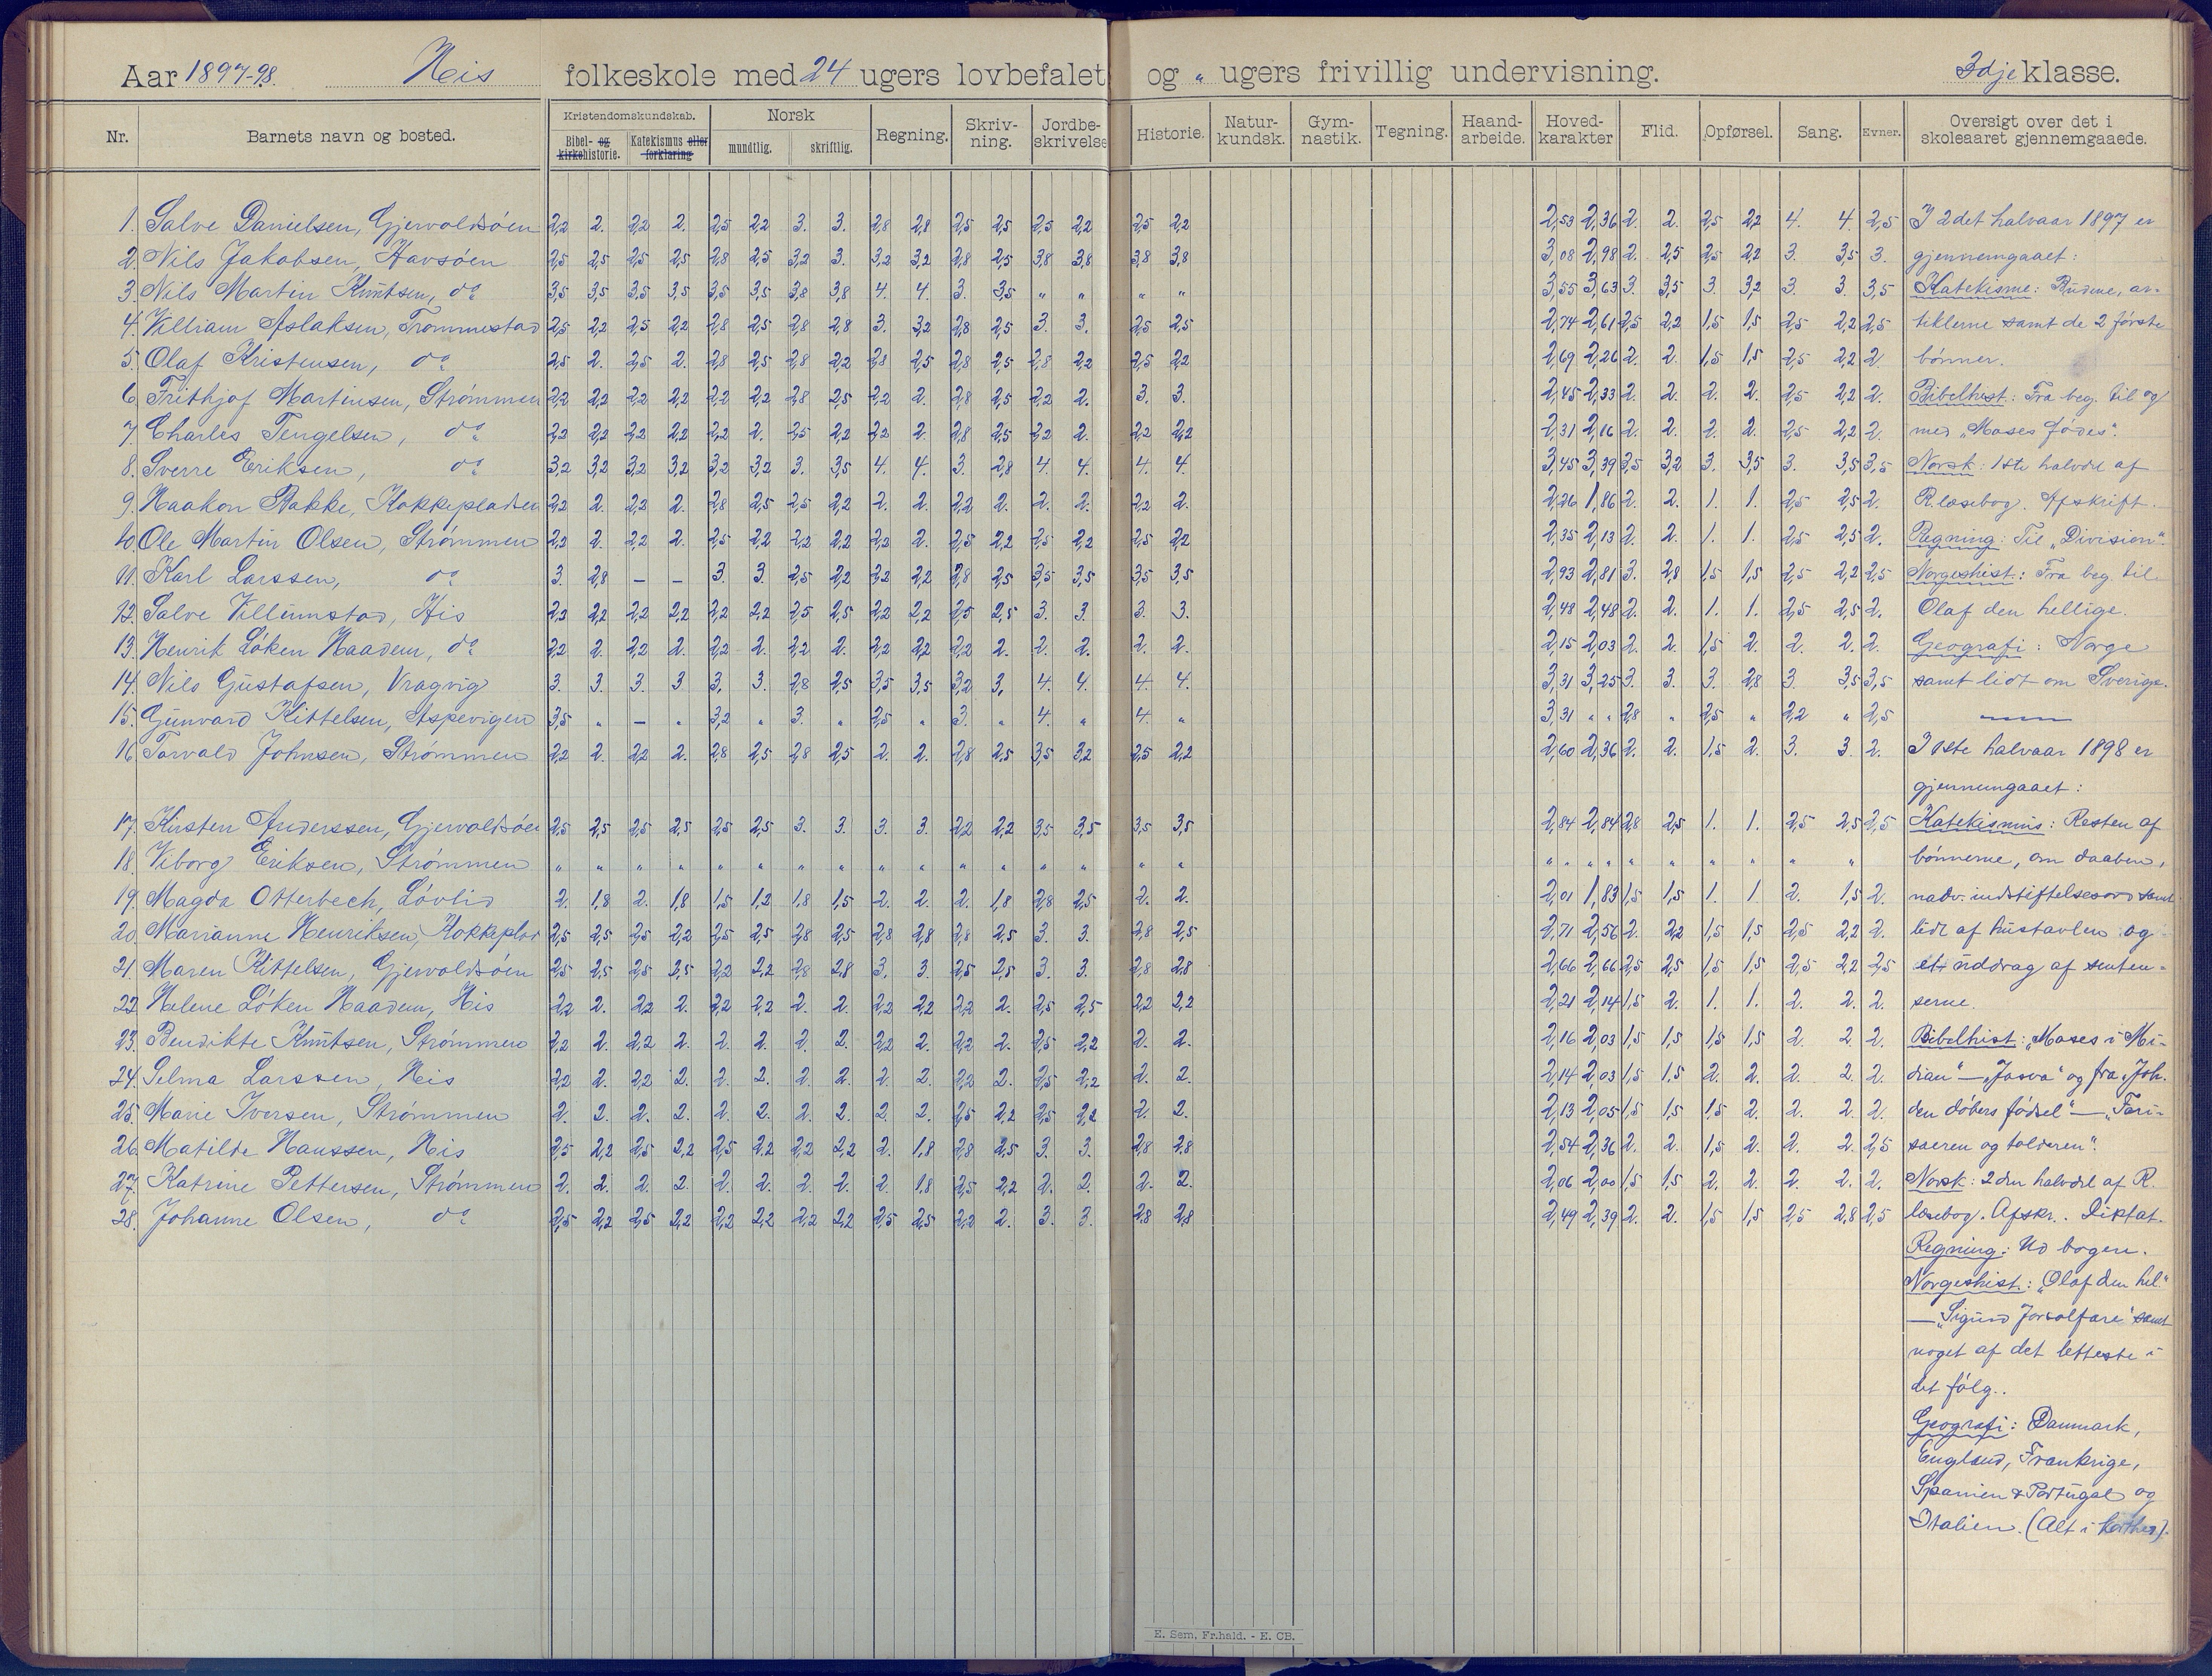 Aar 1897-98. His folkeskole med 24 ugers lovbefalet og " ugers frivillig undervisning. 3dje klasse.
Nr. Barnets navn og bosted. Kristendomskundskab. Bibel- og kirkehistorie. Katekismus eller forklaring Norsk mundtlig. skriftlig. Regning. Skriv-ning. Jordbe-skrivelse Historie. Natur-kundsk. Gym-nastik. Tegning. Haand-arbeide. Hoved-karakter Flid. Opførsel. Sang. Evner. Oversigt over det i skoleaaret gjennemgaaede.
1. Salve Danielsen, Gjervoldsöen 2,2 2. 2,2 2. 2,5 2,2 3. 3. 2,8 2,8 2,5 2,5 2,5 2,2 2,5 2,2 2,53 2,36 2. 2. 2,5 2,2 4. 4. 2,5 I 2det halvaar 1897 er
2. Nils Jakobsen, Havsöen 2,5 2,5 2,5 2,5 2,8 2,5 3,2 3. 3,2 3,2 2,8 2,5 3,8 3,8 3,8 3,8 3,08 2,98 2. 2,5 2,5 2,2 3. 3,5 3. gjennemgaaet:
3. Nils Martin Knutsen, do 3,5 3,5 3,5 3,5 3,5 3,5 3,8 3,8 4. 4. 3. 3,5 " " " " 3,55 3,63 3. 3,5 3. 3,2 3. 3. 3,5 Katekisme: Budene, ar-
4. Villiam Aslaksen, Frommestad 2,5 2,2 2,5 2,2 2,8 2,5 2,8 2,8 3. 3,2 2,8 2,5 3. 3. 2,5 2,5 2,74 2,61 2,5 2,2 1,5 1,5 2,5 2,2 2,5 tiklerne samt de 2 förste
5. Olaf Kristensen, do 2,5 2. 2,5 2. 2,8 2,5 2,8 2,2 2,8 2,5 2,8 2,5 2,8 2,2 2,5 2,2 2,69 2,26 2. 2. 1,5 1,5 2,5 2,2 2. bönner.
6. Frithjof Martinsen, Strömmen 2,2 2,2 2,2 2,2 2,2 2,2 2,8 2,5 2,2 2. 2,8 2,5 2,2 2. 3. 3. 2,45 2,33 2. 2. 2. 2. 2,5 2,2 2. Bibelhist.: Fra beg. til og
7. Charles Tengelsen, do 2,2 2,2 2,2 2,2 2,2 2. 2,5 2,2 2,2 2. 2,8 2,5 2,2 2. 2,2 2,2 2,31 2,16 2. 2. 2. 2. 2,5 2,2 2. med "Moses födes".
8. Sverre Eriksen, do 3,2 3,2 3,2 3,2 3,2 3,2 3. 3,5 4. 4. 3. 2,8 4. 4. 4. 4. 3,45 3,39 3,5 3,2 3. 3,5 3. 3,5 3,5 Norsk: 1ste halvdel af
9. Haakon Bakke, Kokkepladsen 2,2 2. 2,2 2. 2,8 2,5 2,5 2,2 2. 2. 2,2 2. 2. 2. 2,2 2. 2,26 1,86 2. 2. 1. 1. 2,5 2,5 2. R. læsebog. Afskrift.
10. Ole Martin Olsen, Strömmen 2,2 2. 2,2 2. 2,5 2,2 2,2 2,2 2,2 2. 2,5 2,2 2,5 2,2 2,5 2,2 2,35 2,13 2. 2. 1. 1. 2,5 2,5 2. Regning: Til "Division".
11. Karl Larssen, do 3. 2,8 – – 3. 3. 2,5 2,2 2,2 2,2 2,8 2,5 3,5 3,5 3,5 3,5 2,93 2,81 3. 2,8 1,5 1,5 2,5 2,2 2,5 Norgeshist.: Fra beg. til
12. Salve Villumstad, His 2,2 2,2 2,2 2,2 2,2 2,2 2,5 2,5 2,2 2,2 2,5 2,5 3. 3. 3. 3. 2,48 2,48 2. 2. 1. 1. 2,5 2,5 2. Olaf den hellige.
13. Henrik Löken Haadem, do 2,2 2. 2,2 2. 2,2 2. 2,2 2. 2,2 2,2 2,2 2. 2. 2. 2. 2. 2,15 2,03 2. 2. 1,5 2. 2. 2. 2. Geografi: Norge
14. Nils Gustafsen, Vragvig 3. 3. 3. 3 3. 3. 2,8 2,5 3,5 3,5 3,2 3. 4. 4. 4. 4. 3,31 3,25 3. 3. 3. 2,8 3. 3,5 3,5 samt lidt om Sverige.
15. Gunvard Kittelsen, Aspevigen 3,5 " – " 3,2 " 3. " 2,5 " 3. " 4. " 4. " 3,31 " " 2,8 " 2,5 " 2,2 " 2,5
16. Torvald Johnsen, Strömmen 2,2 2. 2,2 2. 2,8 2,5 2,8 2,5 2. 2. 2,8 2,5 3,5 3,2 2,5 2,2 2,60 2,36 2. 2. 1,5 2. 3. 3. 2. I 1ste halvaar 1898 er
gjennemgaaet:
17. Kirsten Anderssen, Gjervoldsöen 2,5 2,5 2,5 2,5 2,5 2,5 3. 3. 3. 3. 2,2 2,2 3,5 3,5 3,5 3,5 2,84 2,84 2,8 2,5 1. 1. 2,5 2,5 2,5 Katekismus: Resten af
18. Viborg Eriksen, Strömmen " " " " " " " " " " " " " " " " " " " " " " " " " " bönnerne, om daaben,
19. Magda Otterbech, Lövlid 2. 1,8 2. 1,8 1,5 1,2 1,8 1,5 2. 2. 2. 1,8 2,8 2,5 2. 2. 2,01 1,83 1,5 1,5 1. 1 2. 1,5 2. nadv. indstiftelsesord samt
20. Marianne Henriksen, Kokkeplad 2,5 2,5 2,5 2,2 2,5 2,5 2,8 2,5 2,8 2,8 2,8 2,5 3. 3. 2,8 2,5 2,71 2,56 2. 2,2 1,5 1,5 2,5 2,2 2. lidt af hustavlen og
21. Maren Kittelsen, Gjervoldsöen 2,5 2,5 2,5 2,5 2,2 2,2 2,8 2,8 3. 3. 2,5 2,5 3. 3. 2,8 2,8 2,66 2,66 2,5 2,5 1,5 1,5 2,5 2,2 2,5 et uddrag af senten-
22. Helene Löken Haadem, His 2,2 2. 2,2 2. 2,2 2,2 2. 2. 2,2 2,2 2,2 2. 2,5 2,5 2,2 2,2 2,21 2,14 1,5 2. 1. 1. 2. 2. 2. serne.
23. Bendikte Knutsen, Strömmen 2,2 2. 2,2 2. 2. 2. 2. 2. 2,2 2. 2,2 2. 2,5 2,2 2. 2. 2,16 2,03 1,5 1,5 1,5 1,5 2. 2. 2. Bibelhist.: "Moses i Mi-
24. Selma Larssen, His 2,2 2. 2,2 2. 2. 2. 2. 2. 2. 2. 2,2 2. 2,5 2,2 2. 2. 2,14 2,03 1,5 1,5 2. 2. 2. 2. 2. dian" – "Josva" og fra "Joh.
25. Marie Iversen, Strömmen 2. 2. 2. 2. 2. 2. 2. 2. 2. 2. 2,5 2,2 2,5 2,2 2. 2. 2,13 2,05 1,5 1,5 1,5 2. 2. 2. 2. den döbers födsel" – "Fari-
26. Matilde Hanssen, His 2,5 2,2 2,5 2,2 2,5 2,2 2,2 2,2 2. 1,8 2,8 2,5 3. 3. 2,8 2,8 2,54 2,36 2. 2. 1,5 2. 2. 2. 2,5 sæeren og tolderen".
27. Katrine Pettersen, Strömmen 2. 2. 2. 2. 2. 2. 2. 2. 2. 1,8 2,5 2,2 2. 2. 2. 2. 2,06 2,00 1,5 1,5 2. 2. 2. 2. 2. Norsk: 2den halvdel af R.
28. Johanne Olsen, do 2,5 2,2 2,5 2,2 2,2 2,2 2,2 2,2 2,5 2,5 2,2 2. 3. 3. 2,8 2,8 2,49 2,39 2. 2. 1,5 1,5 2,5 2,8 2,5 læsebog. Afskr.. Diktat.
Regning: Ud bogen.
Norgeshist.: "Olaf den hel."
– "Sigurd Jorsalfare" samt
noget af det letteste i
det fölg..
Geografi: Danmark,
England, Frankrige,
Spanien & Portugal og
Italien. (Alt i korthed).
E. Sem, Fr.hald. - E. CB.